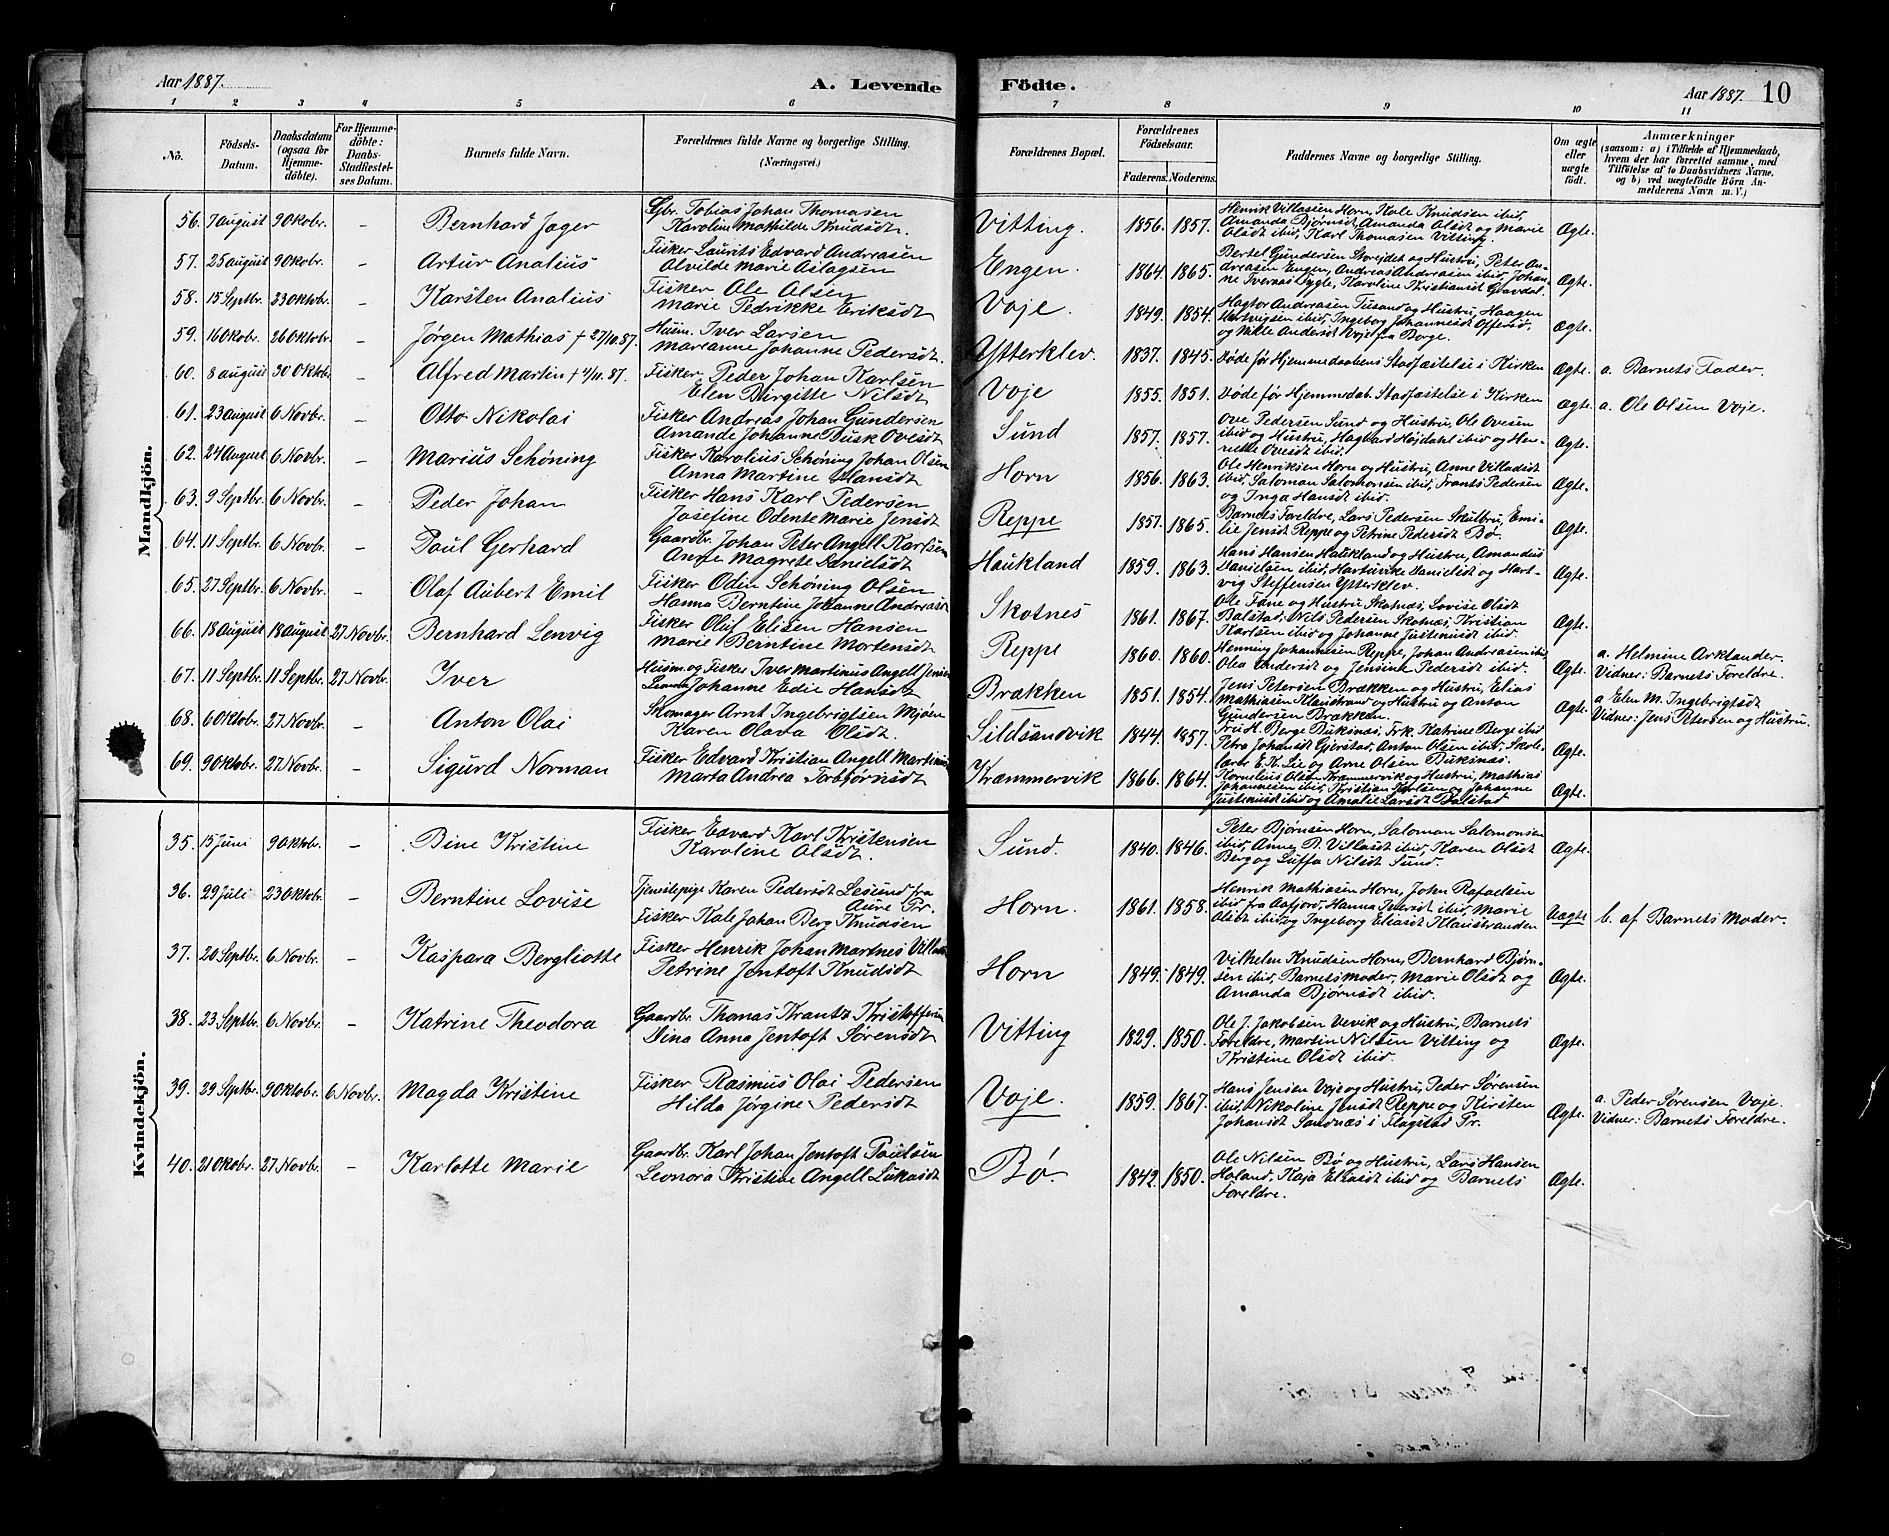 Aar 1887.
A. Levende Födte.
Aar 1887. 10
1 2 3 4 5 6 7 8 9 10 11
No.
Födsels-Datum.
Daabsdatum (ogsaa for Hjemmedöbte).
For Hjemmedöbte: Daabs-Stadfæstelses Datum.
Barnets fulde Navn.
Forældrenes fulde Navne og borgerlige Stilling. (Næringsvei.)
Forældrenes Bopæl.
Forældrenes Födselsaar.
Faderens. Moderens.
Faddernes Navne og borgerlige Stilling.
Om ægte eller uægte födt.
Anmærkninger (saasom: a) i Tilfælde af Hjemmedaab, hvem der har forrettet samme, med Tilföielse af to Daabsvidners Navne, og b) ved uægtefödte Börn Anmelderens Navn m. V.)
Mandkjön.
56. 7 August 9 Okobr. - Bernhard Jager Gbr. Tobias Johan Thomasen Karoline Mathilde Knudsdt. Vitting. 1856. 1857. Henrik Villassen Horn, Kale Knudsen ibid, Amanda Bjørnsdt, Amanda Olsdt og Marie Olsdt ibid, Karl Thomasen Vitting. Ægte.
57. 25 August 9 Okobr. - Artur Analius Fisker Laurits Edvard Andreasen Alvilde Marie Aslagsen Engen. 1864. 1865. Bertel Gundersen Storeidet og Hustru, Peter Andreasen Engen, Andreas Andreasen ibid, Johanne Iversdt Bygle, Karoline Kristiansdt Gravdal. Ægte.
58. 15 Septbr. 23 Oktobr. - Karsten Analius Fisker Ole Olsen Marie Pedrikke Eriksdt Voje. 1849. 1854. Hagtor Andreasen Tusand og Hustru, Haagen Hartvigsen ibid, Ingeborg Johannesdt Offersö, og Mille Andersdt Voje fra Borge. Ægte.
59. 16 Okobr. 26 Oktobr. - Jørgen Mathias + 27/10.87. Husm. Iver Larsen Marianne Johanne Pedersdt. Ytterklev. 1837. 1845. Døde før Hjemmedaabens Stadfæstelse i Kirken Ægte. a. Barnets Fader.
60. 8 August 30 Oktobr. - Alfred Martin + 4/11.87. Fisker Peder Johan Karlsen Elen Birgitte Nilsdt Voje 1855. 1851. Døde før Hjemmedaab. Stadfæstelse i Kirken Ægte. a. Ole Olsen Voje.
61. 23 August 6 Novbr. - Otto Nikolai Fisker Andreas Johan Gundersen Amande Johanne Busk Ovesdt Sund 1857. 1857. Ove Pedersen Sund og Hustru, Ole Ovesen ibid og Hustru, Hagbard Højdahl ibid og Henrikke Ovesdt ibid. Ægte.
62. 24 August 6 Novbr. - Marius Schøning Fisker Karolius Schøning Johan Olsen Anna Martine Hansdt Horn 1856. 1863. Ole Henriksen Horn og Hustru, Anne Villadsdt ibid, Salomon Salomonsen ibid, Frants Pedersen og Inga Hansdt ibid. Ægte.
63. 9 Septbr. 6 Novbr. - Peder Johan Fisker Hans Karl Pedersen Josefine Odente Marie Jensdt Reppe 1857. 1865. Barnets Foreldre, Lars Pedersen Skulbru, Emilie Jensdt Reppe og Petrine Pedersdt Bø. Ægte.
64. 11 Septbr. 6 Novbr. - Paul Gerhard Gaardbr. Johan Peter Angell Karlsen Anne Magrete Danielsdt Haukland 1859. 1863. Hans Hansen Haukland og Hustru, Amandus Danielsen ibid, Hartuvike Danielsdt og Hartvig Steffensen Ytterklev. Ægte.
65. 27 Septbr. 6 Novbr. - Olaf Aubert Emil Fisker Odin Schøning Olsen Hanna Berntine Johanne Andreasdt Skotnes 1861. 1867. Ole Fane og Hustru Skotnæs, Lovise Olsdt Balstad, Nils Pedersen Skotnæs, Kristian Karlsen ibid og Johanne Justensdt ibid. Ægte.
66. 18 August 18 August 27 Novbr. Bernhard Lenvig Fisker Oluf Elisen Hansen Marie Berntine Mortensdt Reppe 1860. 1860. Henning Johannesen Reppe, Johan Andreasen ibid, Olea Andersdt og Jensine Pedersdt ibid. Ægte. a. Helmine Arktander. Vidner: Barnets Foreldre.
67. 11 Septbr. 11 Septbr. 27 Novbr. Iver Husm. og Fisker Iver Martinus Angell Jensen Leonora Johanne Edie Hansdt Brækken 1851. 1854. Jens Petersen Brækken og Hustru, Elias Mathiasen Klaustrand og Hustru og Anton Gundersen Brækken. Ægte. a Elen M. Ingebrigtsdt Vidner: Jens Petersen og Hustru.
68. 6 Oktobr. 27 Novbr. - Anton Olai Skomager Arnt Ingebrigtsen Mjøsen Karen Olava Olsdt. Sildsandvik 1844. 1857. Fru H. Berge Buksnæs, Frk. Katrine Berge ibid Petra Johansdt Gjerstad, Anton Olsen ibid, Skolelærer E. K. Lie og Arne Olsen Buksnæs. Ægte.
69. 9 Oktobr. 27 Novbr. - Sigurd Norman Fisker Edvard Kristian Angell Martinius Marta Andrea Torbjörnsdt Kræmmervik 1866. 1864. Kornelius Olsen Kræmmervik og Hustru, Mathias Johannesen ibid, Kristian Karlsen og Johanne Justensdt ibid og Amalie Larsdt Balstad Ægte.
Kvindekjön.
35. 15 Juni 9 Oktobr. - Bine Kristine Fisker Edvard Karl Kristensen Karoline Olsdt. Sund. 1840. 1846. Peter Bjørnsen Horn, Salomon Salomonsen ibid, Anne B. Villasdt ibid, Karen Olsdt Berg og Luffa Nilsdt Sund. Ægte.
36. 29 Juli 23 Oktobr. - Berntine Lovise Tjenestepige Karen Pedersdt Lesund fra Aure Pr. Fisker Kale Johan Berg Knudsen Horn. 1861. 1858. Henrik Mathiasen Horn, John Rafaelsen ibid fra Aafjord, Hanna Iversdt ibid, Marie Olsdt ibid og Ingeborg Eliasdt Klaustranden Uægte b. af Barnets Moder.
37. 20 Septbr. 6 Novbr. - Kaspara Bergliotte Fisker Henrik Johan Martnes Villassen Petrine Jentoft Knudsdt Horn 1849. 1849. Vilhelm Knudsen Horn, Bernhard Bjørnsen ibid, Barnets Moder, Marie Olsdt og Amanda Bjørnsdt ibid. Ægte.
38. 23 Septbr. 6 Novbr. - Katrine Theodora Gaardbr. Thomas Krantz Kristoffersen Dina Anna Jentoft Sørensdt Vitting 1829. 1850. Ole J. Jakobsen Vevik og Hustru, Barnets Foreldre, Martin Nilsen Vitting og Kristine Olsdt ibid. Ægte.
39. 29 Septbr. 9 Oktobr. 6 Novbr. Magda Kristine Fisker Rasmus Olai Pedersen Hilda Jørgine Pedersdt Voje. 1859. 1867. Hans Jensen Voje og Hustru, Peder Sørensen ibid, Nikoline Jensdt Reppe og Kirsten Johansdt Sandnæs i Flagstad Pr. Ægte. a. Peder Sørensen Voje. Vidner: Barnets Foreldre.
40. 21 Okobr. 27 Novbr. - Karlotte Marie Gaardbr. Karl Johan Jentoft Poulsen Leonora Kristine Angell Lukasdt Bø. 1842. 1850. Ole Nilsen Bø og Hustru, Lars Hansen Holand, Kaja Eliasdt ibid og Barnets Foreldre. Ægte.